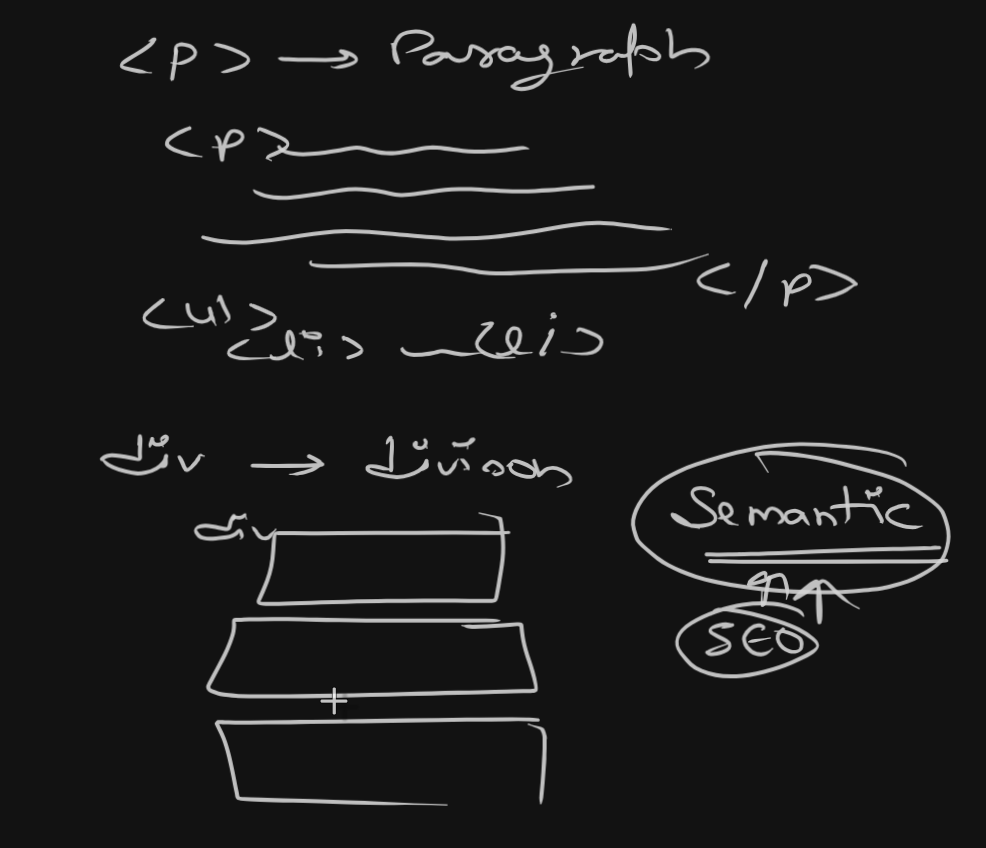 <p> → Paragraph
<p>
</p>
<ul>
<li> <li>
div → divison
div
Semantic
SEO